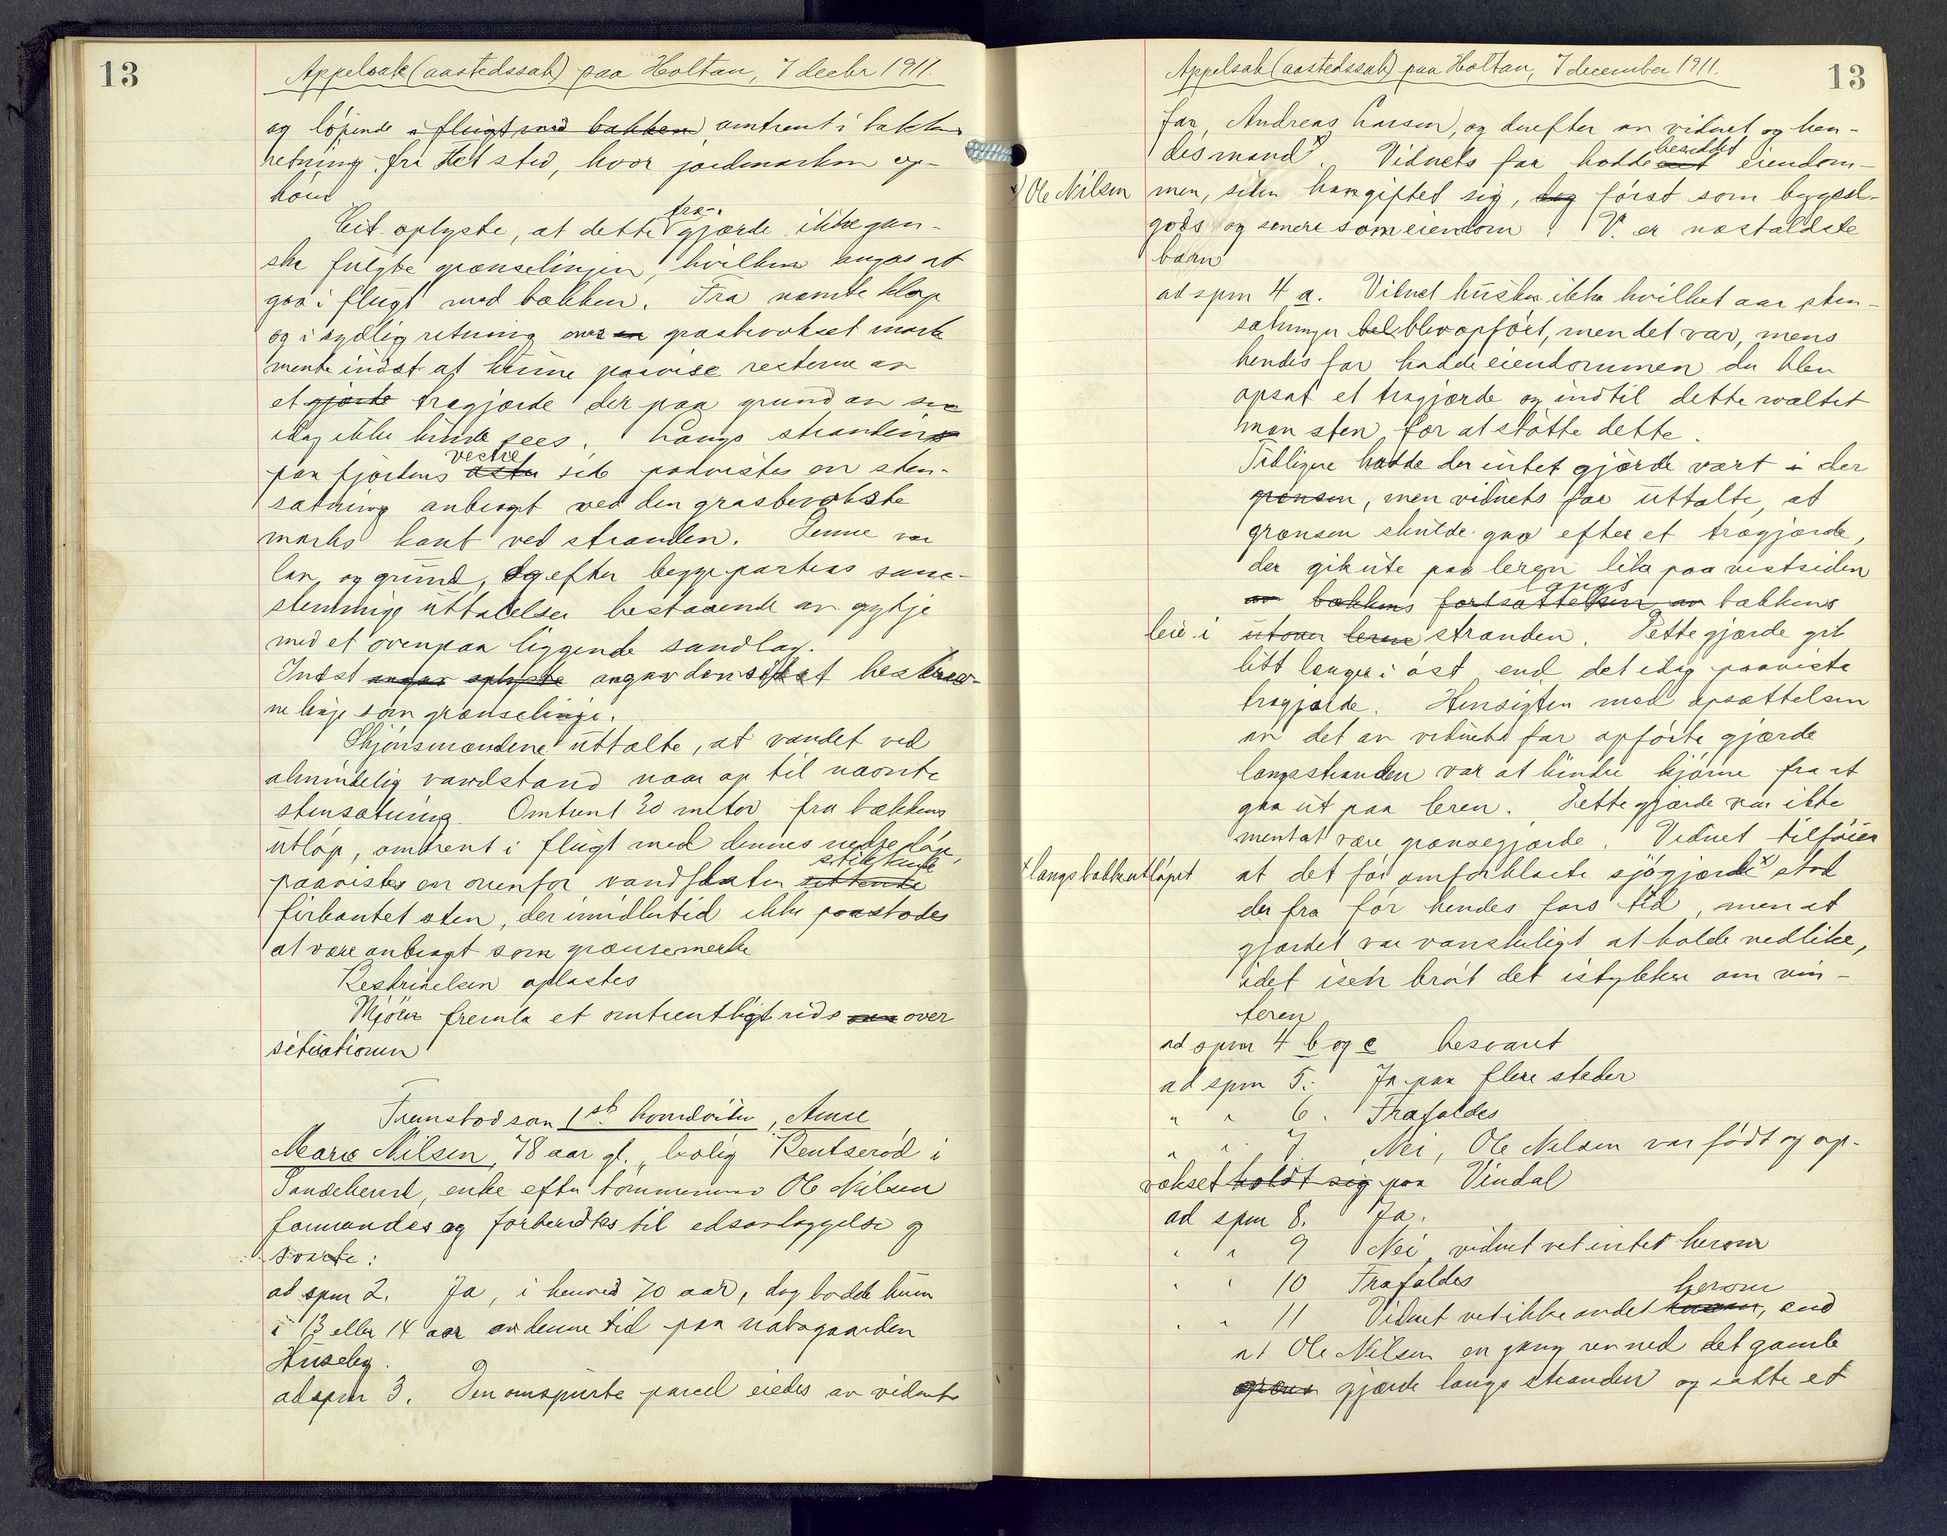 13
Appelsak (aastedssak) paa Holtan, 7 decbr 1911.
og löpende i flugt med bækken omtrent i bækkens
retning fra det sted, hvor jordmarken op-
hörer
Cit. oplyste, at dette træ-gjærde ikke gan-
ske fulgte grænselinjen, hvilken angas at
gaa i flugt med bækken. Fra nævnte klop
og i sydlig retning over en græsbevokset mark
mente indst. at kunne paavise resterne av
et gjærde trægjærde der paa grund av sne
idag ikke kunde sees. Langs stranden
paa fjordens östre vestre side paavistes en sten-
sætning anbragt ved den græsbevokste
marks kant ved stranden. Denne var
lav, og grund, og efter begge parters sam-
stemmige uttalelser bestaaende av gytje
med et ovenpaa liggende sandlag.
Indst. angav oplyste angav den sidst beskrev-
ne linje som grænselinje.
Skjönsmændene uttalte, at vandet ved
almindelig vandstand naar op til nævnte
stensætning. Omtrent 30 meter fra bækkens
utlöp, omtrent i flugt med dennes nedre löp,
paavistes en ovenfor vandflaten sittende stikkende
firkantet sten, der imidlertid ikke paastodes
at være anbragt som grænsemerke
Beskrivelsen oplæstes
Mjöen fremla et omtrentligt rids over
situationen
Fremstod som 1st. hovedvidne, Anne
Marie Nilsen, 78 aar gl., bolig Bentserød i
Sandeherred, enke efter tömmermand Ole Nilsen
formandes og forberedtes til edsavlæggelse og
svarte:
ad spm 2. Ja, i henved 70 aar, dog bodde hun
i 13 eller 14 aar av denne tid paa nabogaarden
Huseby.
ad spm 3. Den omspurte parcel eiedes av vidnets
13
Appelsak (aastedssak) paa Holtan, 7 december 1911.
far, Andreas Larsen, og derefter av vidnet og hen-
des mand x). Vidnets far hadde besiddet eiendom-
x) Ole Nilsen
men, siden han giftet sig, dog först som bygsel-
gods og senere som eiendom. V. er næstældste
barn
ad spm 4 a. Vidnet husker ikke hvilket aar sten-
sætningen blev opfört, men det var, mens
hendes far hadde eiendommen der blev
opsat et trægjærde og indtil dette væltet
man sten for at stötte dette.
Tidligere hadde der intet gjærde vært i der
grænsen, men vidnets far uttalte, at
grænsen skulde gaa efter et trægjærde,
der gik ute paa leren like paa vestsiden
av bækkens fortsættelsen av langs bækkens
leie i utover leren stranden. Dette gjærde gik
litt længer i öst end det idag paaviste
trægjærde. Hensigten med opsættelsen
av det av vidnets far opförte gjærde
langs stranden var at hindre kjørne fra at
gaa ut paa leren. Dette gjærde var ikke
ment at være grænsegjærde. Vidnet tilföier
x langs bækkeutlöpet
at det för omforklarte sjögjærde x) stod
der fra för hendes fars tid, men at
gjærdet var vanskeligt at holde vedlike,
idet isen bröt det istykker om vin-
teren
ad spm 4 b og c besvaret
ad spm 5. Ja paa flere steder
" " 6. Frafaldes
" " 7 Nei, Ole Nilsen var födt og op-
vokset holdt sig paa Vindal
ad spm 8. Ja.
" " 9 Nei vidnet vet intet herom
" " 10 Frafaldes
" " 11 Vidnet vet ikke andet herom, end
at Ole Nilsen en gang rev ned det gamle
græns gjærde langs stranden og satte et